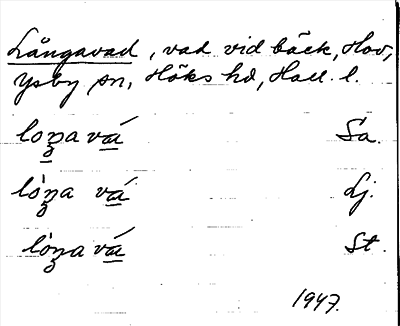 Långavad, vad vid bäck, Hov,
Ysby sn, Höks hd, Hall. l.
loŋa vá Sa.
lòŋa vá Lj.
lòŋa vá St.
1947.